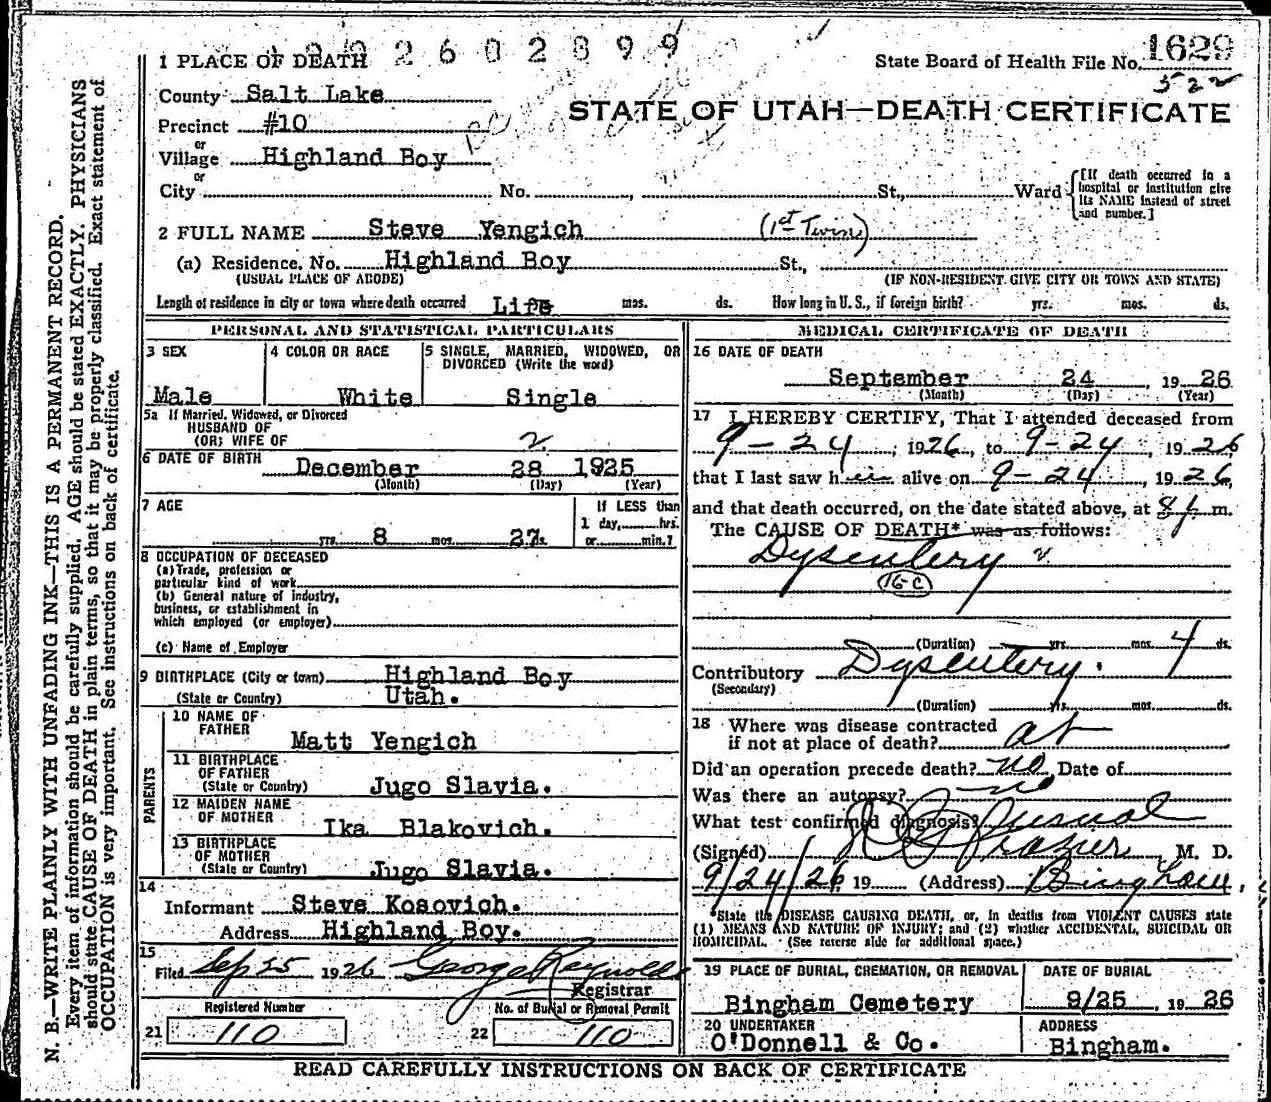 1 PLACE OF DEATH 2602899
State Board of Health File No. 1629
522
County Salt Lake
STATE OF UTAH—DEATH CERTIFICATE
Precinct #10
or
Village Highland Boy
or
City No. , St., Ward
[If death occurred in a hospital or institution give its NAME instead of street and number.]
2 FULL NAME Steve Yengich (1st Twin)
(a) Residence. No. Highland Boy St.,
(USUAL PLACE OF ABODE) (IF NON-RESIDENT GIVE CITY OR TOWN AND STATE)
Length of residence in city or town where death occurred Life mos. ds. How long in U. S., if foreign birth? yrs. mos. ds.
PERSONAL AND STATISTICAL PARTICULARS
3 SEX
Male
4 COLOR OR RACE
White
5 SINGLE, MARRIED, WIDOWED, OR
DIVORCED (Write the word)
Single
5a If Married, Widowed, or Divorced
HUSBAND OF
(OR) WIFE OF
6 DATE OF BIRTH December 28 1925
(Month) (Day) (Year)
7 AGE
yrs. 8 mos. 27 ds.
If LESS than
1 day, hrs.
or min.?
8 OCCUPATION OF DECEASED
(a) Trade, profession or
particular kind of work
(b) General nature of industry,
business, or establishment in
which employed (or employer)
(c) Name of Employer
9 BIRTHPLACE (City or town) Highland Boy
(State or Country) Utah.
PARENTS
10 NAME OF
FATHER
Matt Yengich
11 BIRTHPLACE
OF FATHER
(State or Country) Jugo Slavia.
12 MAIDEN NAME
OF MOTHER
Ika Blakovich.
13 BIRTHPLACE
OF MOTHER
(State or Country) Jugo Slavia.
14
Informant Steve Kosovich.
Address Highland Boy.
15
Filed Sep 25 1926 George Reynolds
Registrar
Registered Number
21 110
No. of Burial or Removal Permit
22 110
MEDICAL CERTIFICATE OF DEATH
16 DATE OF DEATH
September 24, 1926
(Month) (Day) (Year)
17 I HEREBY CERTIFY, That I attended deceased from
9-24, 1926, to 9-24, 1926
that I last saw him alive on 9-24, 1926,
and that death occurred, on the date stated above, at 8 p. m.
The CAUSE OF DEATH* was as follows:
Dysentery
16-C
(Duration) yrs. mos. 4 ds.
Contributory Dysentery.
(Secondary)
(Duration) yrs. mos. ds.
18 Where was disease contracted
if not at place of death? at
Did an operation precede death? no Date of
Was there an autopsy? no
What test confirmed diagnosis? usual
(Signed) Frazier, M. D.
9/24/26, 19 (Address) Bingham,
*State the DISEASE CAUSING DEATH, or, in deaths from VIOLENT CAUSES state
(1) MEANS AND NATURE OF INJURY; and (2) whether ACCIDENTAL, SUICIDAL OR
HOMICIDAL. (See reverse side for additional space.)
19 PLACE OF BURIAL, CREMATION, OR REMOVAL
Bingham Cemetery
DATE OF BURIAL
9/25, 1926
20 UNDERTAKER
O'Donnell & Co.
ADDRESS
Bingham.
READ CAREFULLY INSTRUCTIONS ON BACK OF CERTIFICATE
N. B.—WRITE PLAINLY WITH UNFADING INK—THIS IS A PERMANENT RECORD.
Every item of information should be carefully supplied. AGE should be stated EXACTLY. PHYSICIANS
should state CAUSE OF DEATH in plain terms, so that it may be properly classified. Exact statement of
OCCUPATION is very important. See instructions on back of certificate.